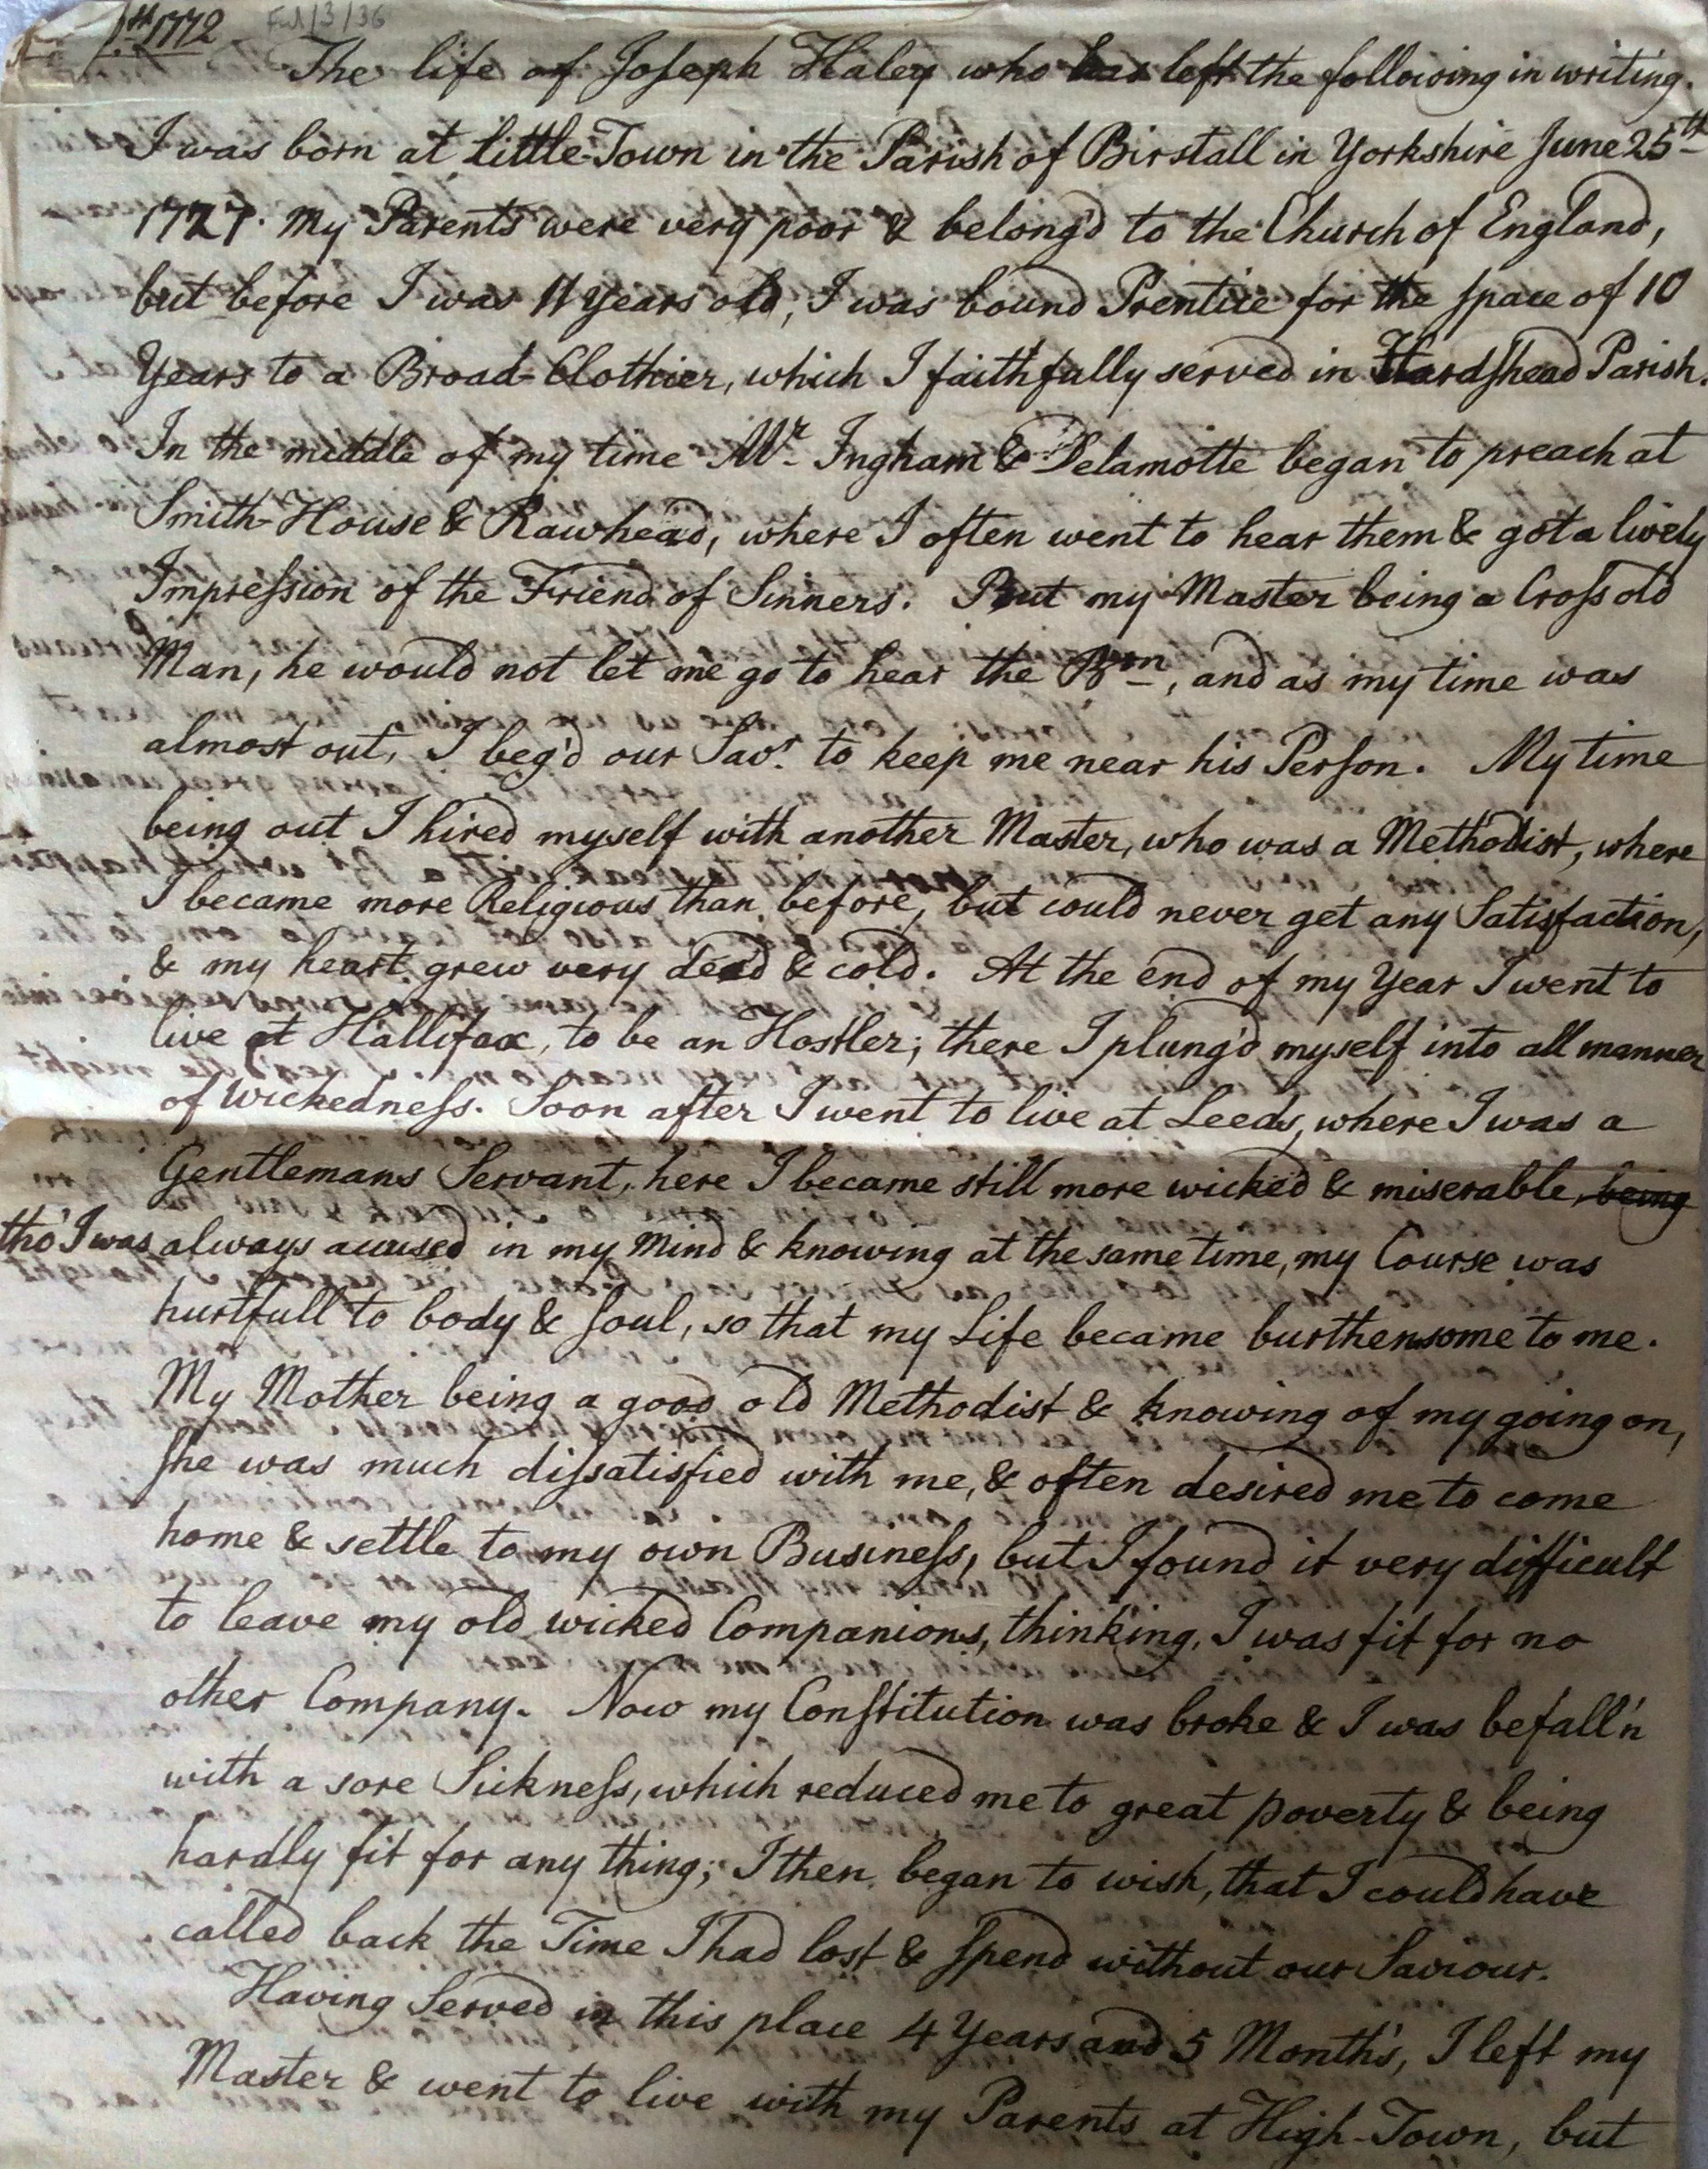 1772 Ful/3/36
The life of Joseph Haley who has left the following in writing.
I was born at Little-Town in the Parish of Birstall in Yorkshire June 25th
1727. My Parents were very poor & belong'd to the Church of England,
but before I was 11 Years old, I was bound Prentice for the space of 10
Years to a Broad-Clothier, which I faithfully served in Hardshead Parish.
In the middle of my time Mr. Ingham & Delamotte began to preach at
Smith-House & Rawhead, where I often went to hear them & got a lively
Impression of the Friend of Sinners. But my Master being a Cross old
Man, he would not let me go to hear the Brn, and as my time was
almost out, I beg'd our Savr. to keep me near his Person. My time
being out I hired myself with another Master, who was a Methodist, where
I became more Religious than before, but could never get any Satisfaction,
& my heart grew very dead & cold. At the end of my Year I went to
live at Hallifax, to be an Hostler; there I plung'd myself into all manner
of wickedness. Soon after I went to live at Leeds, where I was a
Gentlemans Servant, here I became still more wicked & miserable, being
tho' I was always accused in my Mind & knowing at the same time, my Course was
hurtfull to body & Soul, so that my Life became burthensome to me.
My Mother being a good old Methodist & knowing of my going on,
she was much dissatisfied with me, & often desired me to come
home & settle to my own Business, but I found it very difficult
to leave my old wicked Companions, thinking, I was fit for no
other Company. Now my Constitution was broke & I was befall'n
with a sore Sickness, which reduced me to great poverty & being
hardly fit for any thing; I then began to wish, that I could have
called back the Time I had lost & spend without our Saviour.
Having Served in this place 4 Years and 5 Month's, I left my
Master & went to live with my Parents at High-Town, but